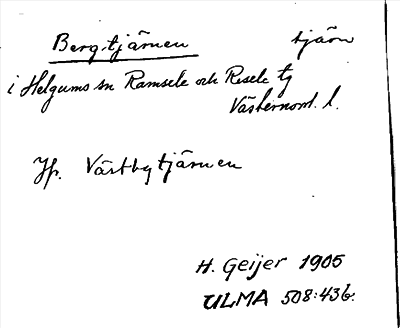 Bergtjärnen tjärn
i Helgums sn Ramsele och Resele tg
Västernorrl. l.
Jfr. Västbytjärnen
H. Geijer 1905
ULMA 508:43b.